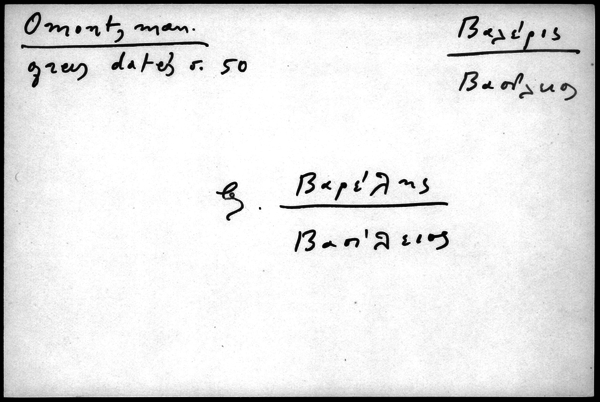 Omont, man.
grecs datés σ. 50
Βαλέρις
Βασίλειος
Βαρέλης
Βασίλειος